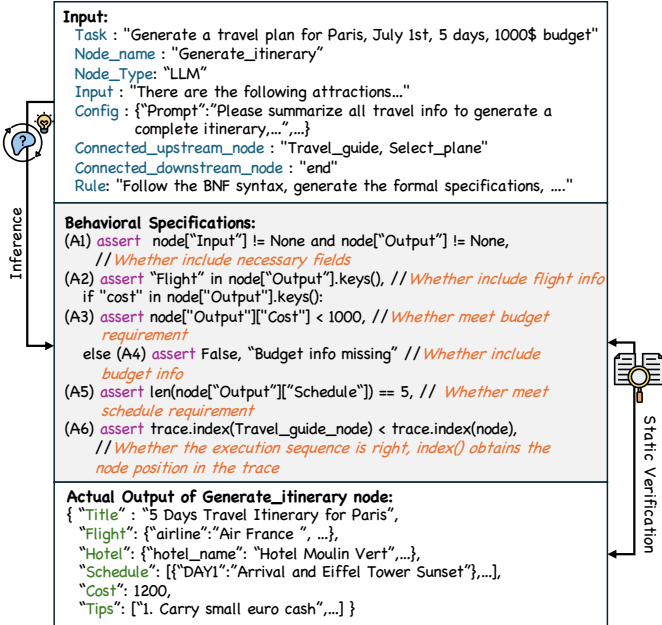 Input:
Task : "Generate a travel plan for Paris, July 1st, 5 days, 1000$ budget"
Node_name : "Generate_itinerary"
Node_Type: "LLM"
Input : "There are the following attractions..."
Config : {"Prompt":"Please summarize all travel info to generate a
complete itinerary,...",...}
Connected_upstream_node : "Travel_guide, Select_plane"
Connected_downstream_node : "end"
Rule: "Follow the BNF syntax, generate the formal specifications, ...."
Inference
Behavioral Specifications:
(A1) assert node["Input"] != None and node["Output"] != None,
//Whether include necessary fields
(A2) assert "Flight" in node["Output"].keys(), //Whether include flight info
if "cost" in node["Output"].keys():
(A3) assert node["Output"]["Cost"] < 1000, //Whether meet budget
requirement
else (A4) assert False, "Budget info missing" //Whether include
budget info
(A5) assert len(node["Output"]["Schedule"]) == 5, // Whether meet
schedule requirement
(A6) assert trace.index(Travel_guide_node) < trace.index(node),
//Whether the execution sequence is right, index() obtains the
node position in the trace
Static Verification
Actual Output of Generate_itinerary node:
{ "Title" : "5 Days Travel Itinerary for Paris",
"Flight": {"airline":"Air France ", ...},
"Hotel": {"hotel_name": "Hotel Moulin Vert",...},
"Schedule": [{"DAY1":"Arrival and Eiffel Tower Sunset"},...],
"Cost": 1200,
"Tips": ["1. Carry small euro cash",...] }